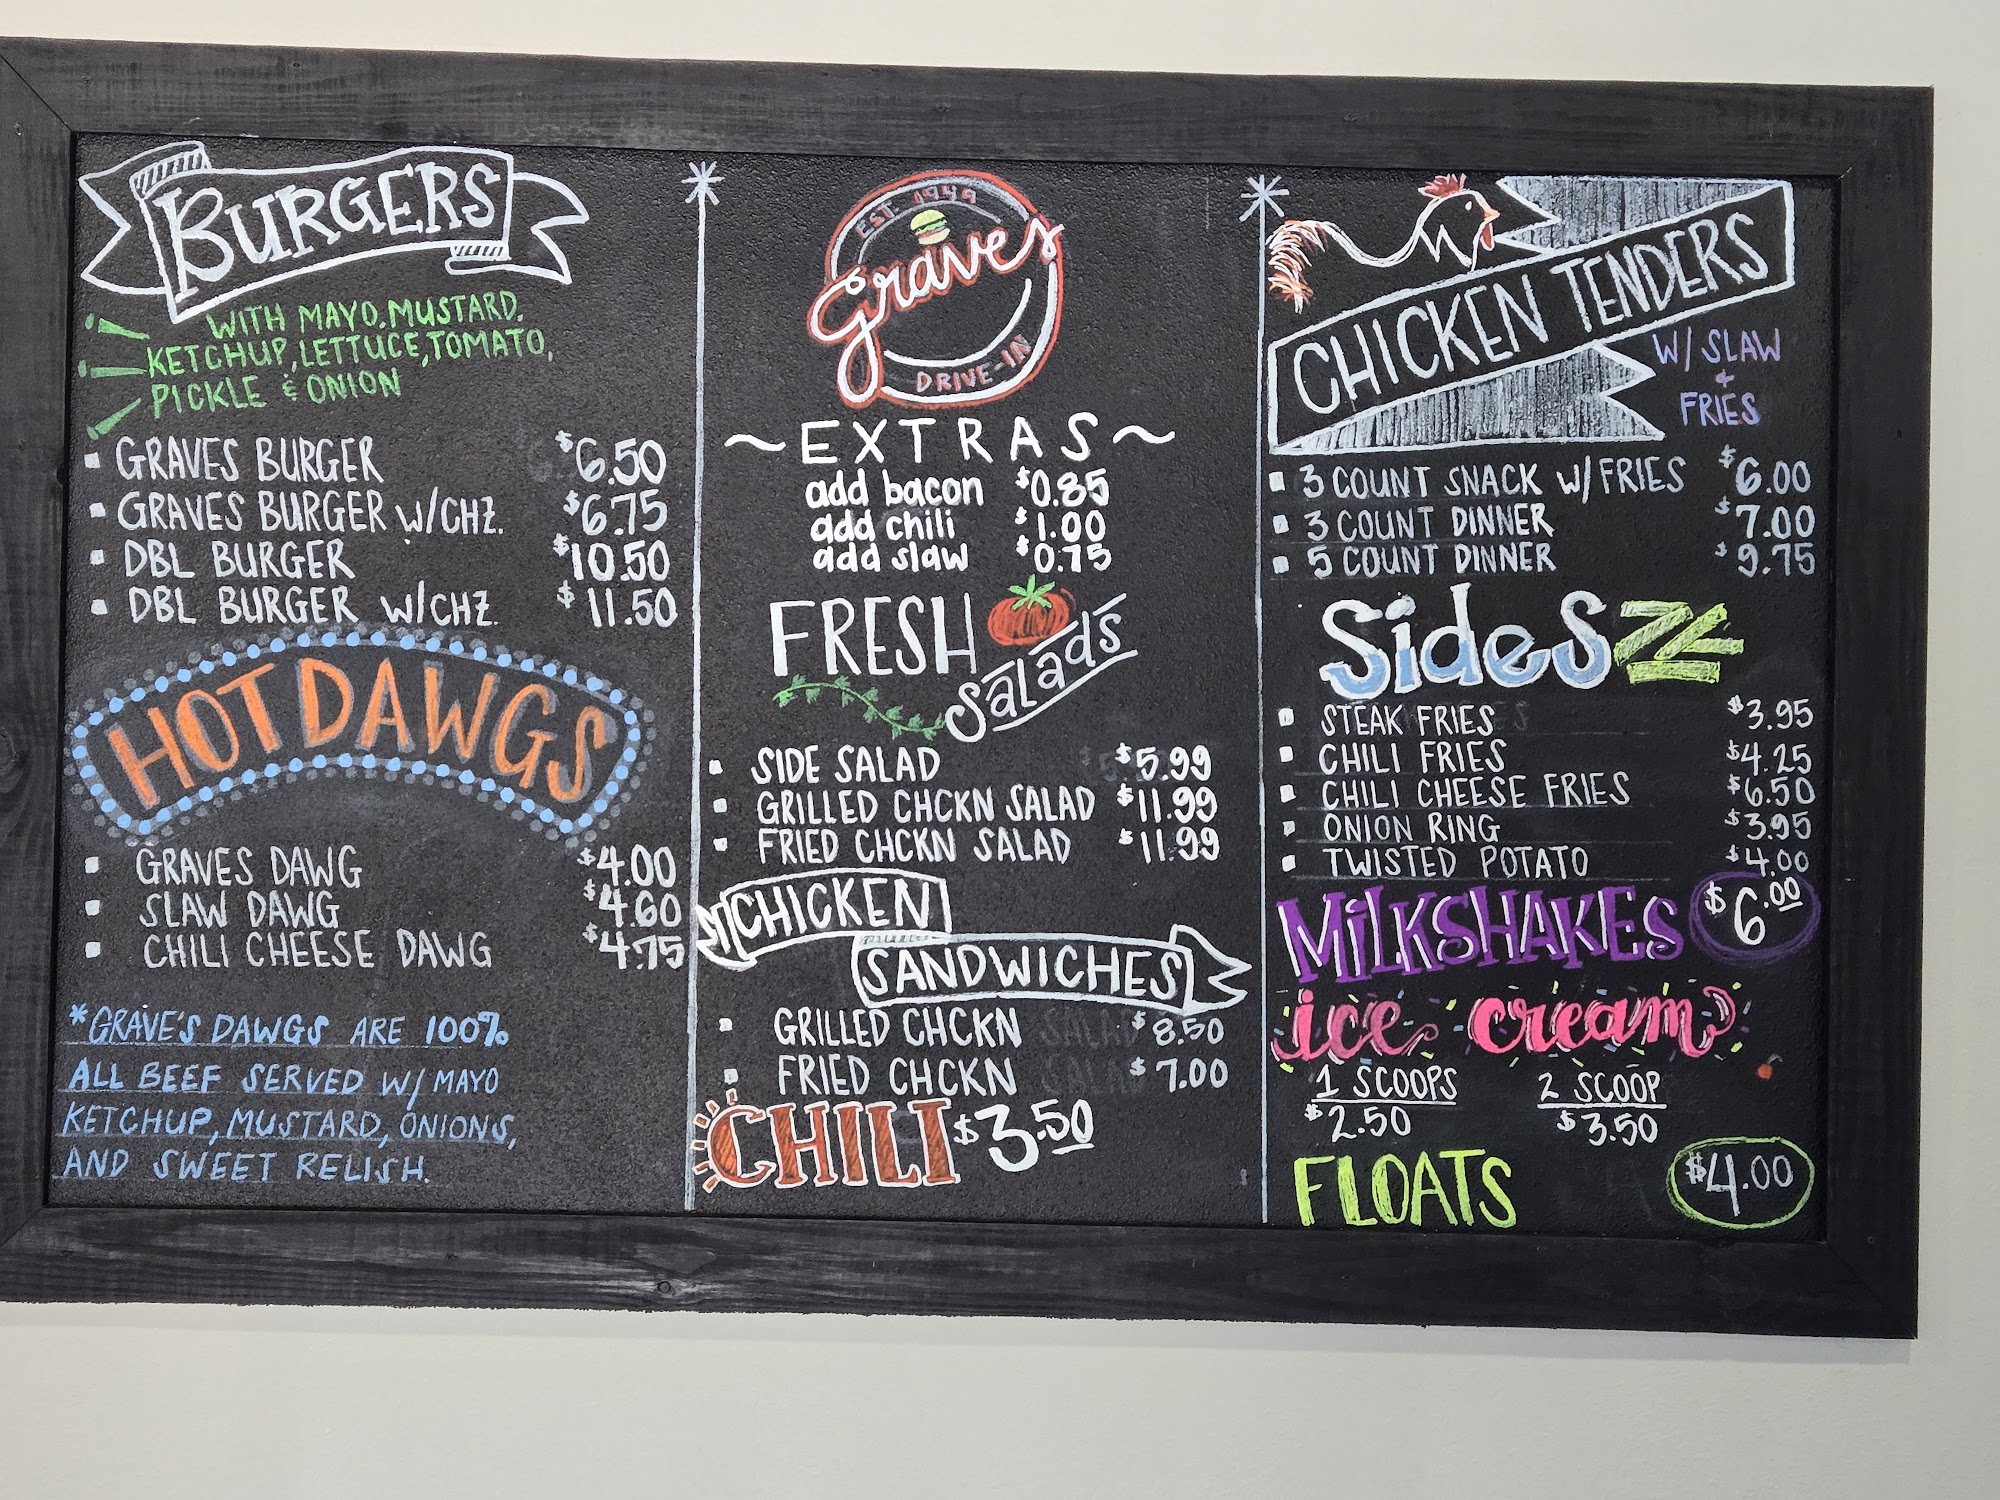 BURGERS
WITH MAYO, MUSTARD,
KETCHUP, LETTUCE, TOMATO,
PICKLE & ONION
GRAVES BURGER $6.50
GRAVES BURGER W/CHZ. $6.75
DBL BURGER $10.50
DBL BURGER W/CHZ. $11.50
HOT DAWGS
GRAVES DAWG $4.00
SLAW DAWG $4.60
CHILI CHEESE DAWG $4.75
*GRAVE'S DAWGS ARE 100%
ALL BEEF SERVED W/ MAYO
KETCHUP, MUSTARD, ONIONS,
AND SWEET RELISH.
EST. 1949
Graves
DRIVE-IN
~EXTRAS~
add bacon $0.85
add chili $1.00
add slaw $0.75
FRESH
Salads
SIDE SALAD $5.99
GRILLED CHCKN SALAD $11.99
FRIED CHCKN SALAD $11.99
CHICKEN
SANDWICHES
GRILLED CHCKN $8.50
FRIED CHCKN $7.00
CHILI $3.50
CHICKEN TENDERS
W/ SLAW
+
FRIES
3 COUNT SNACK W/ FRIES $6.00
3 COUNT DINNER $7.00
5 COUNT DINNER $9.75
Sides
STEAK FRIES $3.95
CHILI FRIES $4.25
CHILI CHEESE FRIES $6.50
ONION RING $3.95
TWISTED POTATO $4.00
MILKSHAKES $6.00
ice cream
1 SCOOPS 2 SCOOP
$2.50 $3.50
FLOATS $4.00